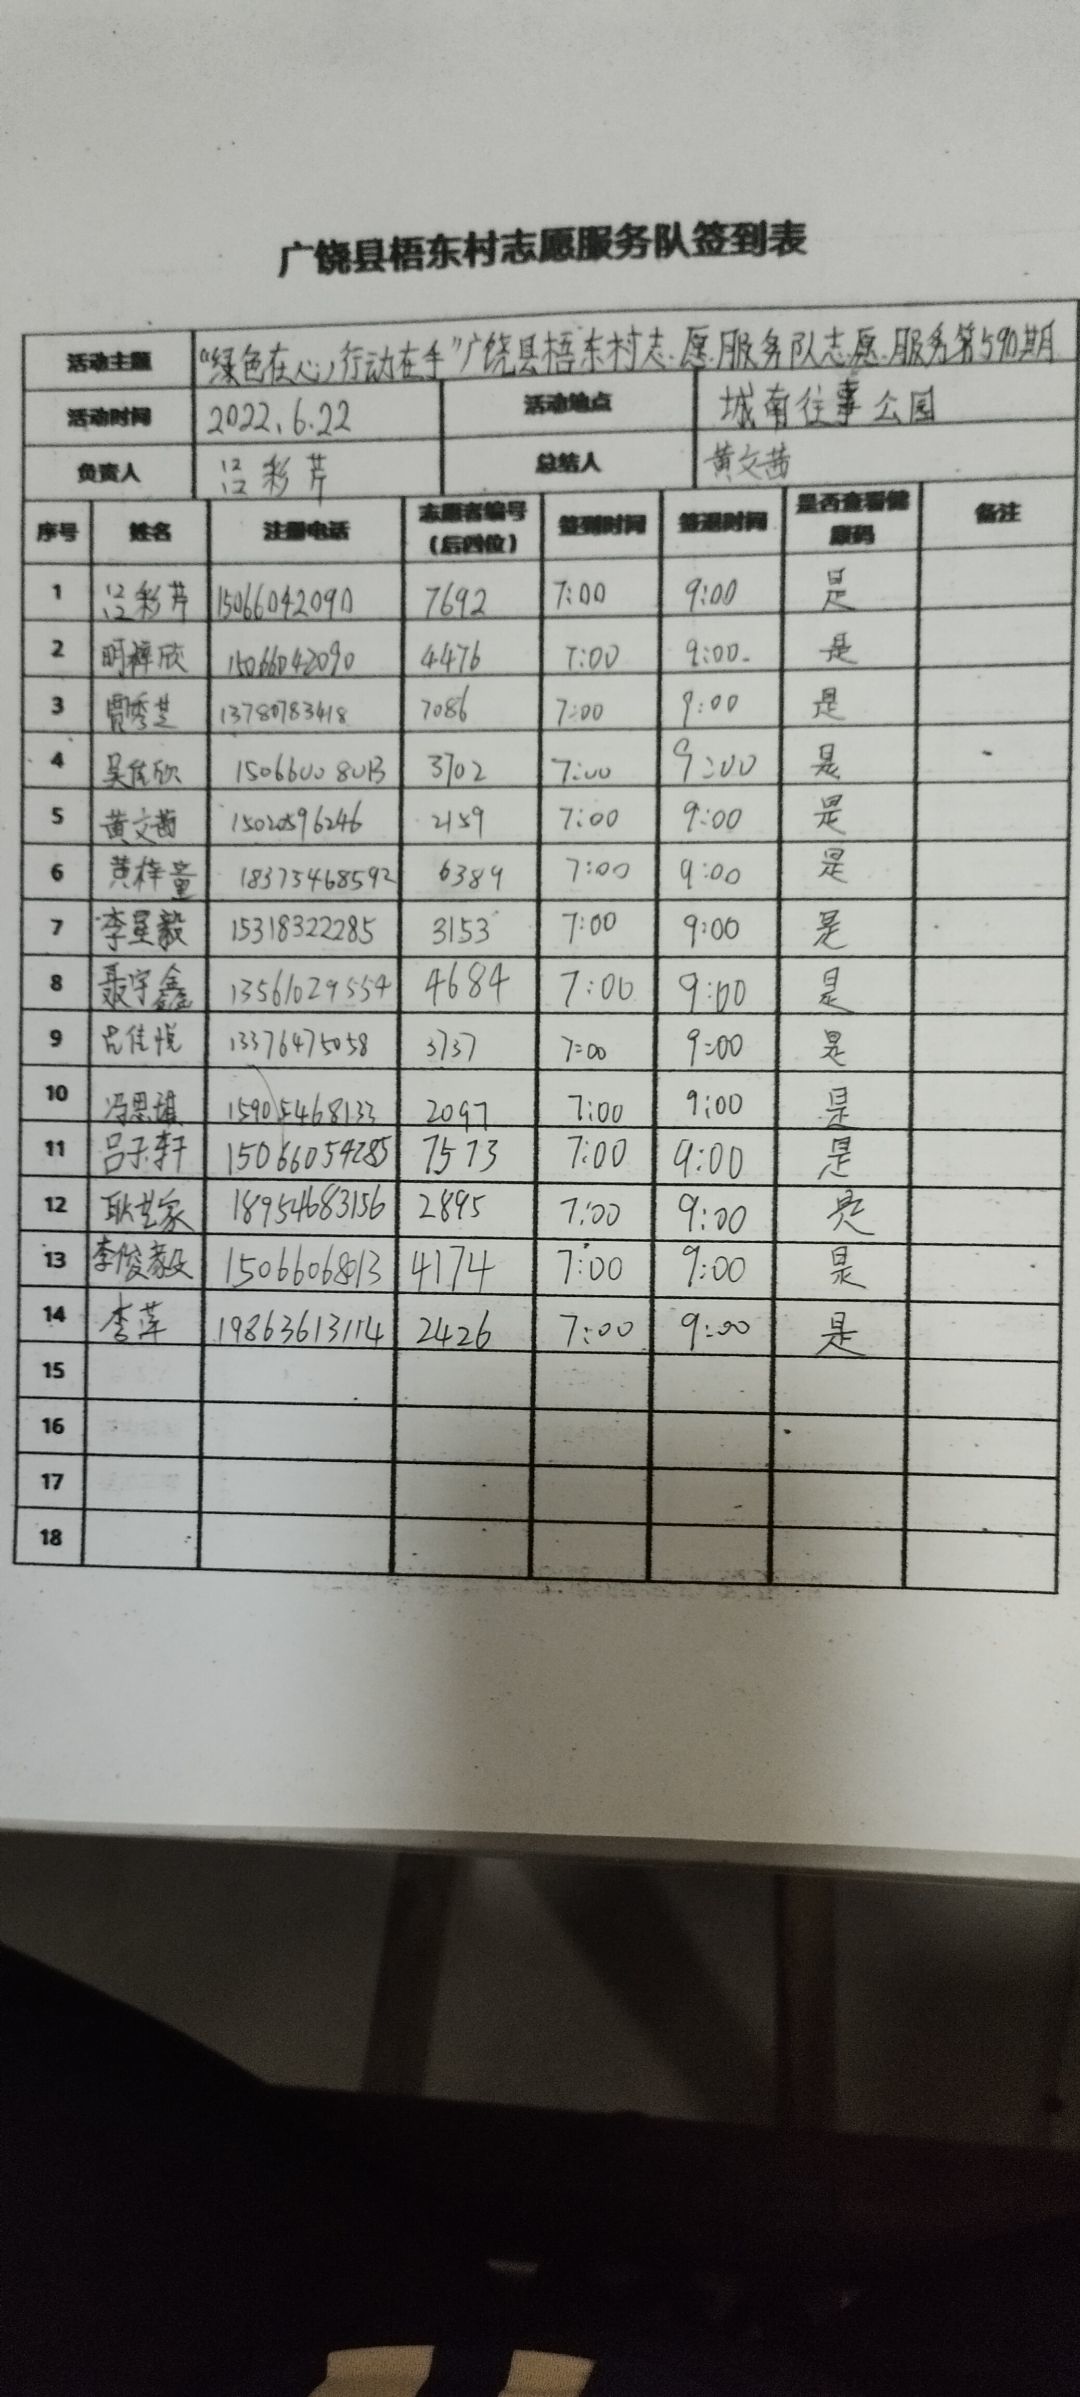 广饶县梧东村志愿服务队签到表
活动主题 “绿色在心,行动在手”广饶县梧东村志愿服务队志愿服务第590期
活动时间 2022.6.22 活动地点 城南往事公园
负责人 彩芹 总结人 黄文茜
序号 姓名 注册电话 志愿者编号（后四位） 签到时间 签退时间 是否查看健康码 备注
1 彩芹 15066042090 7692 7:00 9:00 是
2 明梓欣 15066042090 4476 7:00 9:00 是
3 贾秀芝 13780783418 7086 7:00 9:00 是
4 吴佳欣 15066008013 3702 7:00 9:00 是
5 黄文茜 15020596246 2159 7:00 9:00 是
6 黄梓童 18375468592 6389 7:00 9:00 是
7 李星毅 15318322285 3153 7:00 9:00 是
8 聂宇鑫 13561029554 4684 7:00 9:00 是
9 佳悦 13376475058 3737 7:00 9:00 是
10 冯思琪 15905468133 2097 7:00 9:00 是
11 吕子轩 15066054285 7573 7:00 9:00 是
12 耿世家 18954683156 2895 7:00 9:00 是
13 李俊毅 15066068013 4174 7:00 9:00 是
14 李莲 19863613114 2426 7:00 9:00 是
15
16
17
18